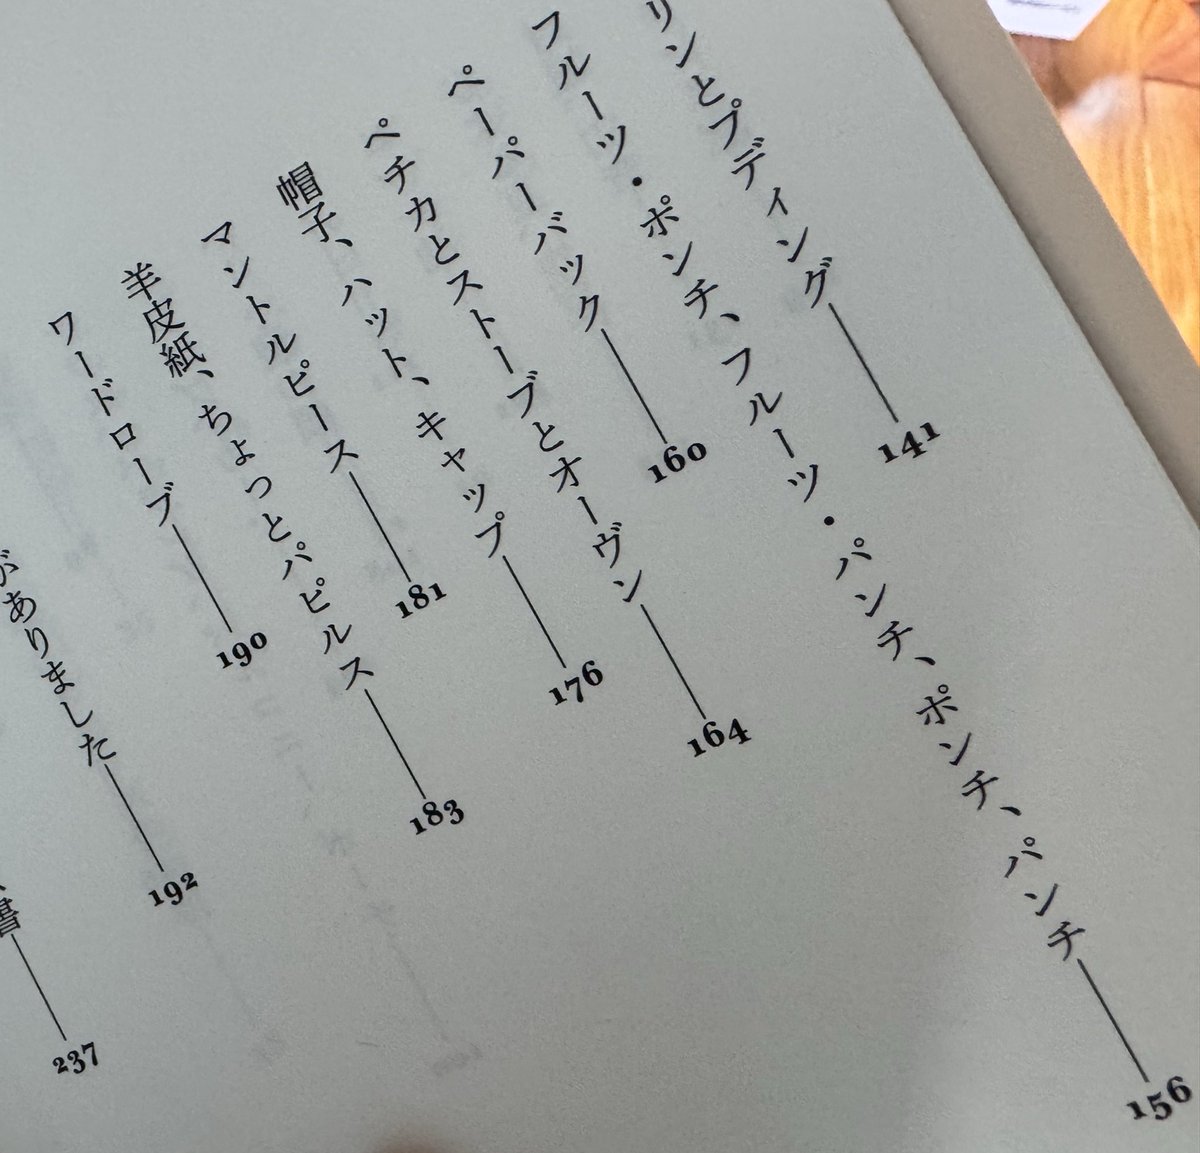 リンとプディング 141
フルーツ・ポンチ、フルーツ・パンチ、ポンチ、パンチ 156
ペーパーバック 160
ペチカとストーブとオーヴン 164
帽子、ハット、キャップ 176
マントルピース 181
羊皮紙、ちょっとパピルス 183
ワードローブ 190
がありました 192
書 237